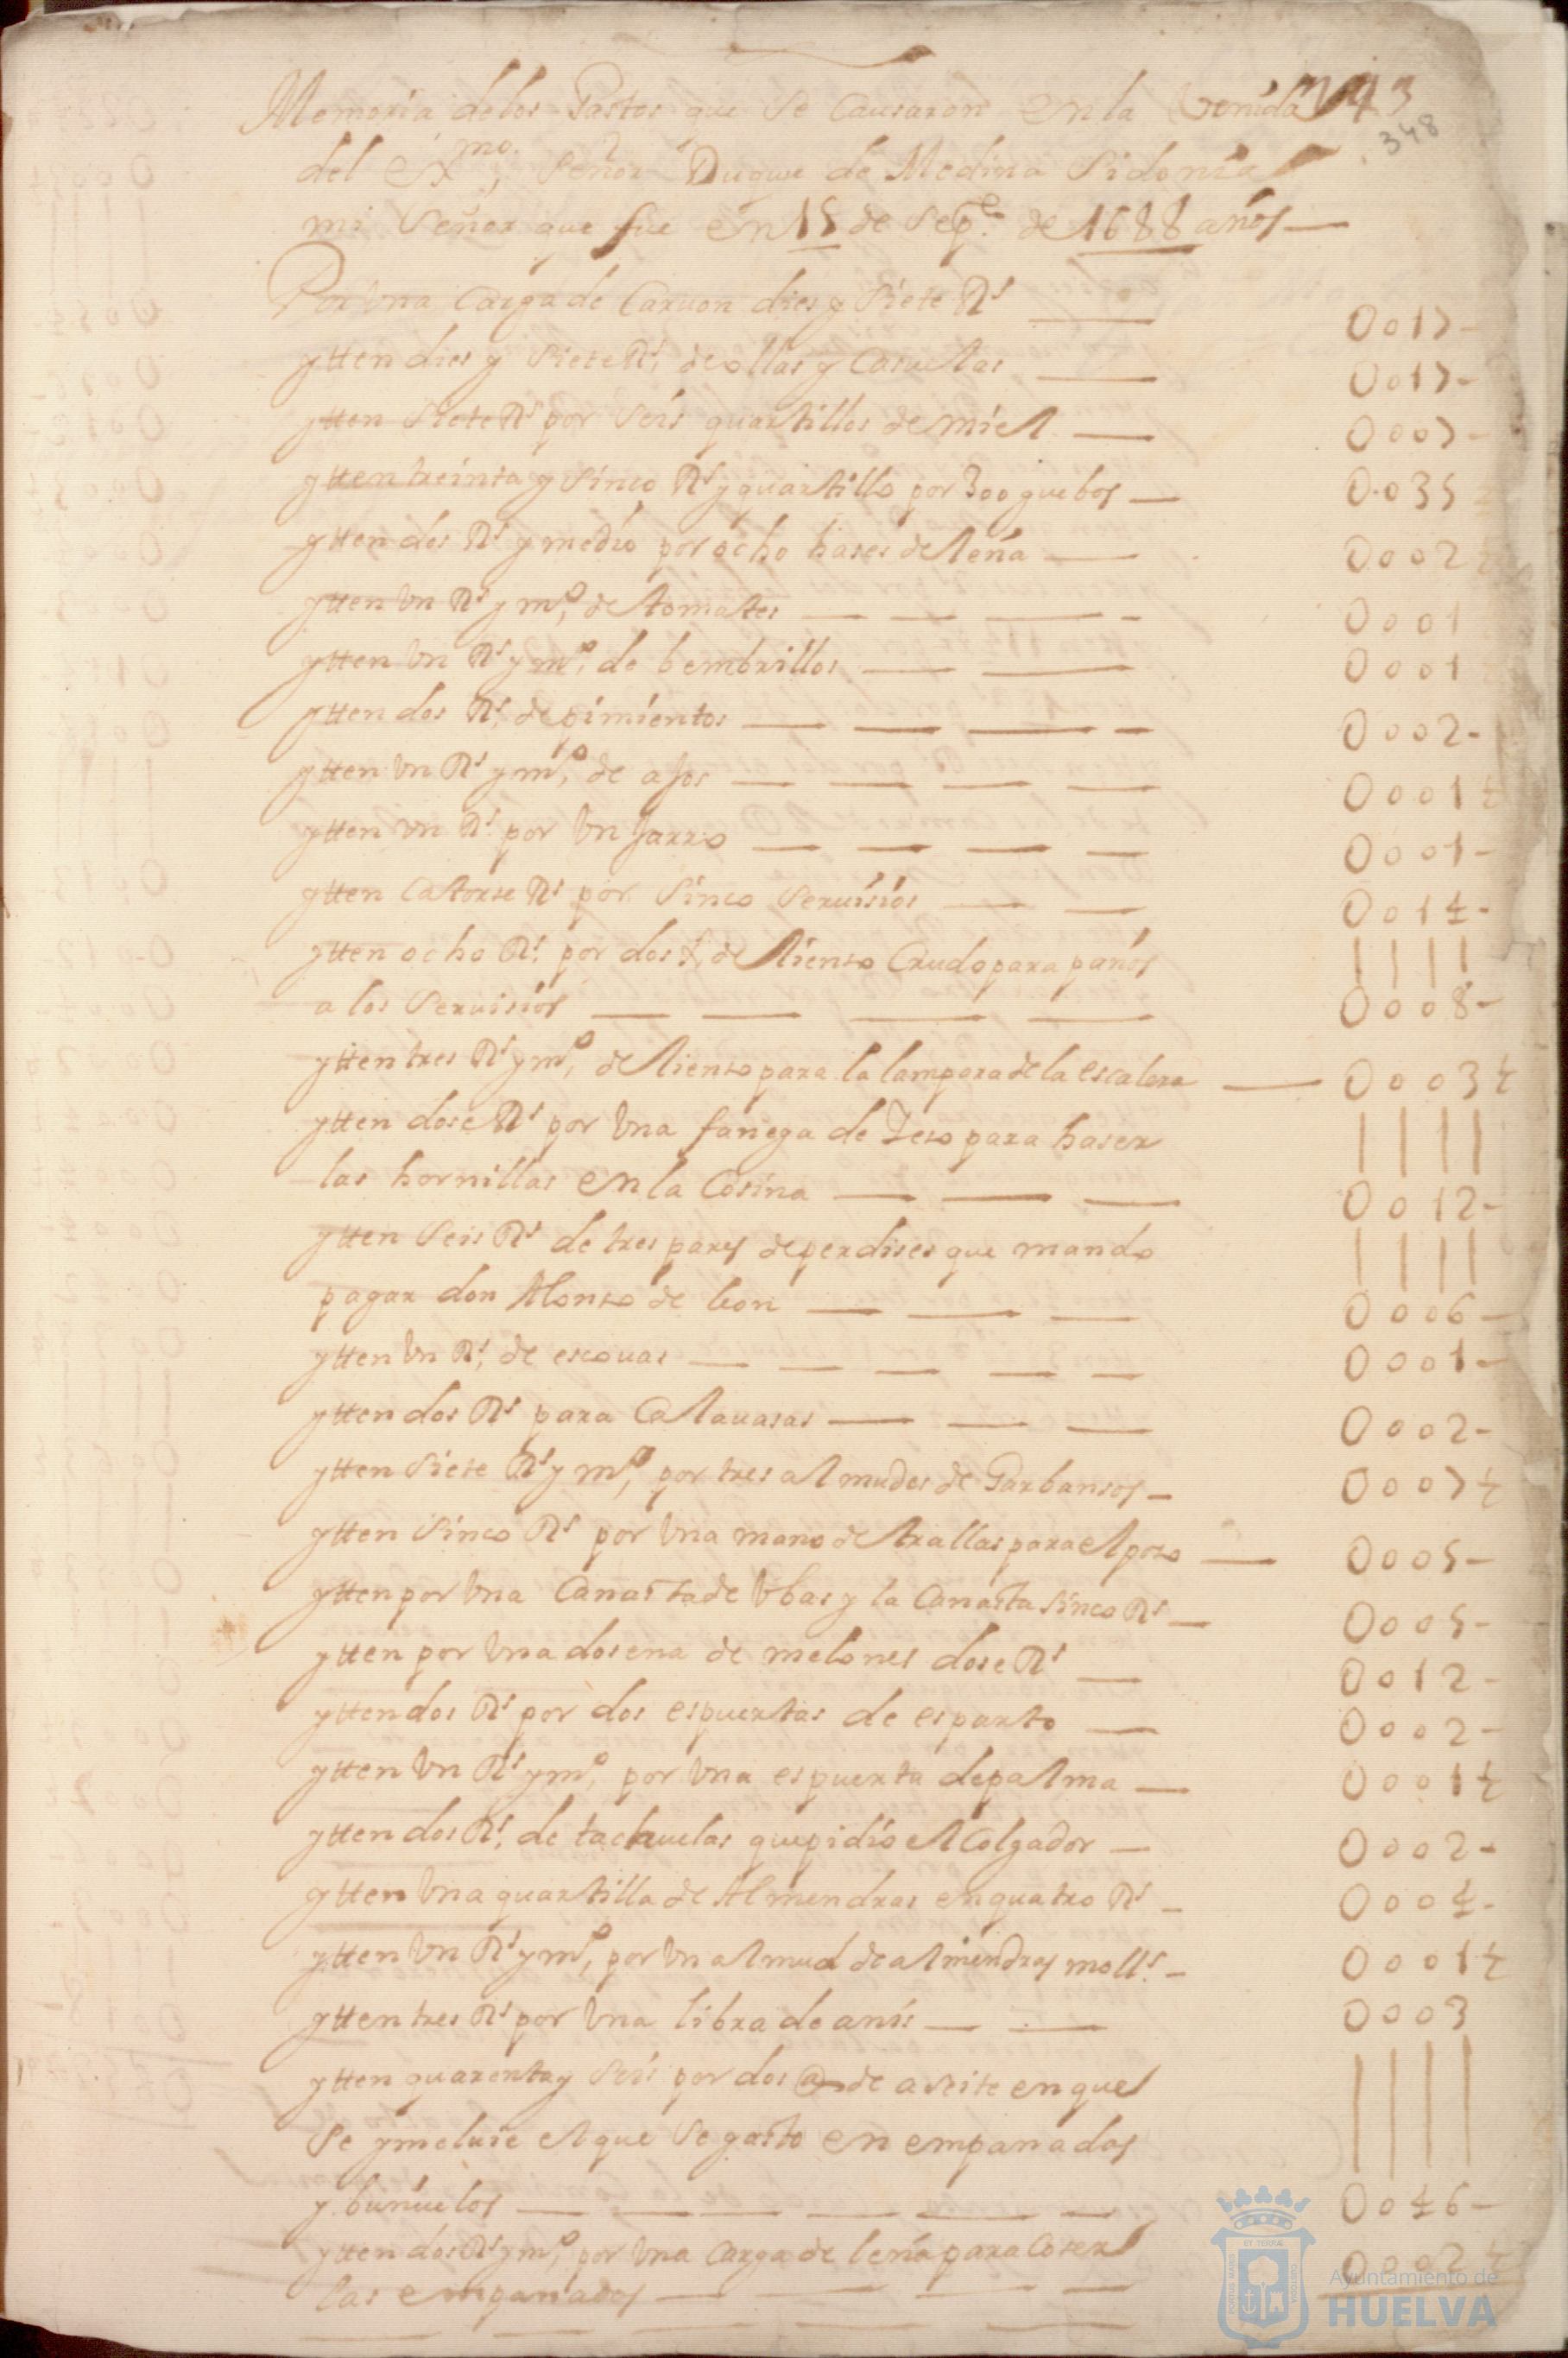 343
348
Memoria de los Gastos que se Causaron en la Venida
del Exmo. Señor Duque de Medina Sidonia
mi Señor que fue en 15 de Sepe. de 1688 años —
Por Vna Carga de Caruon dies y Siete Rs — 0017-
ytten dies y Siete Rs. de ollas y Casuelas — 0017-
ytten Siete Rs por Seis quartillos de miel — 0007-
ytten treinta y Sinco Rs y quartillo por 300 guebos — 0035
ytten dos Rs y medio por ocho hases de leña — 0002½
ytten Vn Rs y mo, de tomates — 0001
ytten Vn Rs y mo, de bembrillos — 0001
ytten dos Rs, de pimientos — 0002-
ytten Vn Rs y mo, de ajos — 0001½
ytten Vn Rs. por Vn Jarro — 0001-
ytten Catorse Rs por Sinco Seruisios — 0014-
ytten ocho Rs. por dos de lienso Crudo para paños
a los Seruisios — 0008-
ytten tres Rs y mo, de lienso para la lampara de la escalera — 0003½
ytten dose Rs por Vna fanega de Yeso para haser
las hornillas en la Cosina — 0012-
ytten Seis Rs de tres pares de perdises que mando
pagar don Alonso de leon — 0006-
ytten Vn Rs, de escouas — 0001-
ytten dos Rs para Calauasas — 0002-
ytten Siete Rs y mo, por tres almudes de Garbansos — 0007½
ytten Sinco Rs por Vna mano de trallas para el poso — 0005-
ytten por Vna Canasta de Vbas y la Canasta Sinco Rs — 0005-
ytten por Vna dosena de melones dose Rs — 0012-
ytten dos Rs por dos espuertas de esparto — 0002-
ytten Vn Rs y mo, por Vna espuerta de palma — 0001½
ytten dos Rs, de tachuelas que pidio el Colgador — 0002-
ytten Vna quartilla de Almendras en quatro Rs — 0004-
ytten Vn Rs y mo, por Vn almud de almendras molls. — 0001½
ytten tres Rs por Vna libra de anis — 0003
ytten quarenta y Seis por dos @ de aseite en que
Se ymcluie el que Se gasto en empanadas
y buñuelos — 0046-
ytten dos Rs y mo, por Vna Carga de leña para Coser
las empanadas — 0002½
Ayuntamiento de
HUELVA